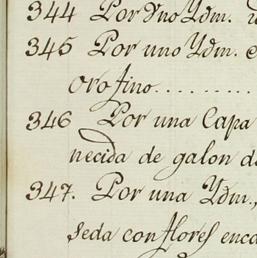 344 Por Uno Ydm.
345 Por uno Ydm. e
oro fino..........
346 Por una Capa
necida de galon d
347. Por una Ydm.,
seda con flores enca